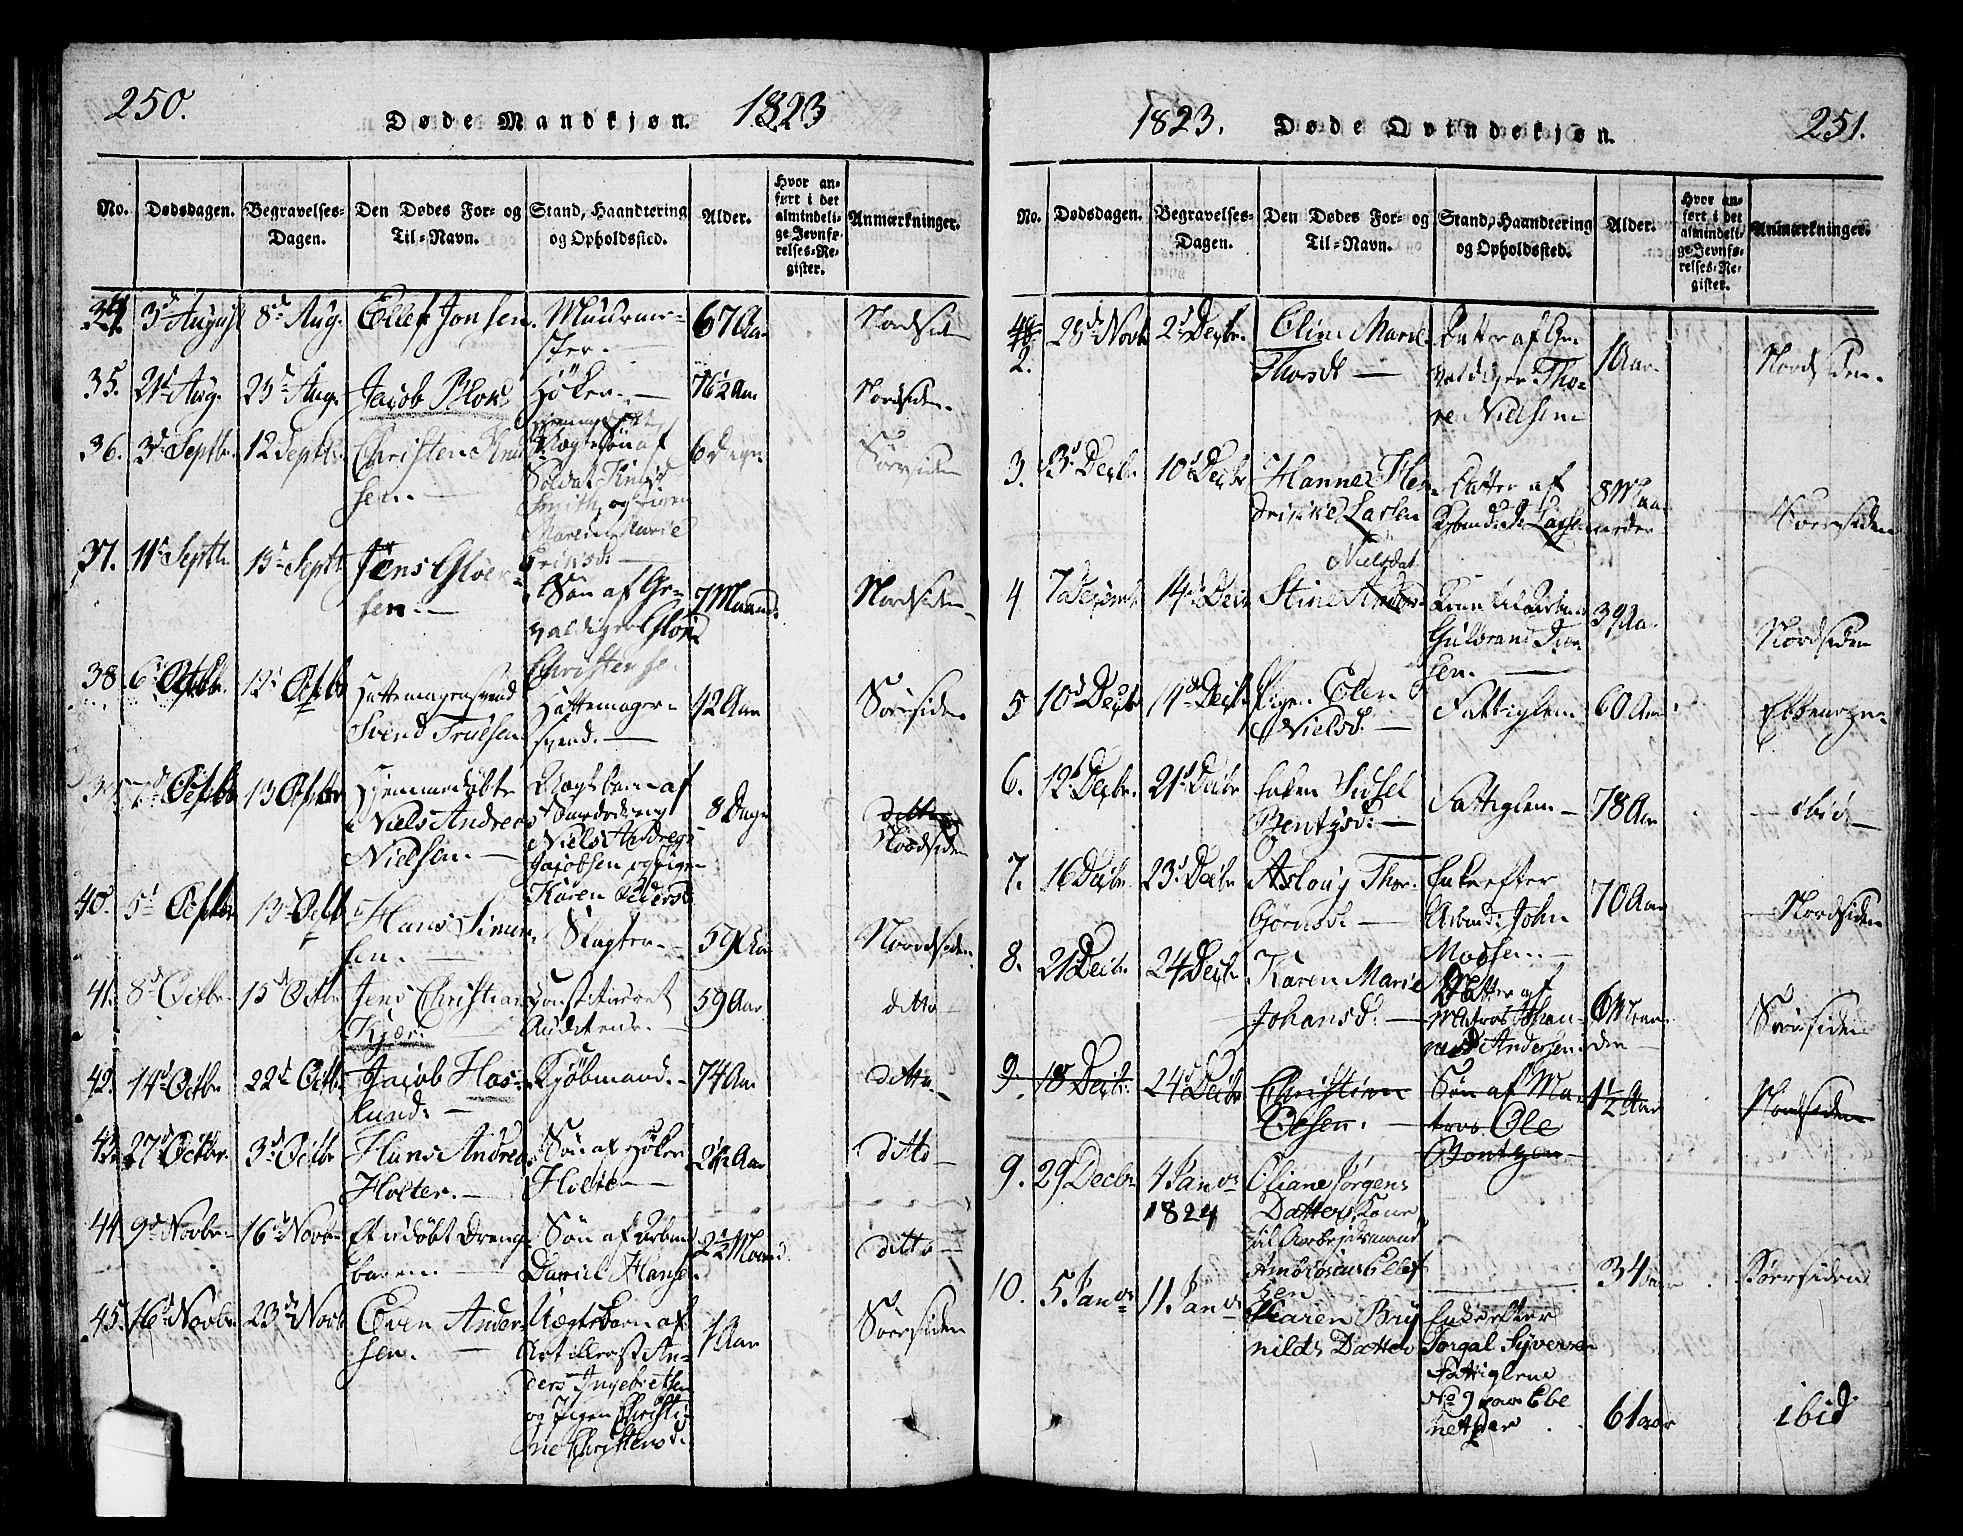 250.
Døde Mandkjøn. 1823
No. Dødsdagen. Begravelses-Dagen. Den Dødes For- og Til-Navn. Stand, Haandtering og Opholdssted. Alder. Hvor anført i det almindelige Jevnførelses-Register. Anmærkninger.
34. 3d August 8d Aug. Ellef Jonsen. Muurmester. 67 Aar Nordsiden
35. 21d Aug. 25d Aug. Jacob Blok Høker. 76½ Aar Nordsiden.
36. 3d Septbr. 12 Septbr. Christen Knudsen. Uægte Søn af Soldat Knud Smith og Pigen Maren Marie Eriksd. 6 Dage Sørsiden
37. 11d Septbr 15d Septbr Jens Gloersen. Søn af Gevaldiger Gloer Christense. 7 Maand. Nordsiden
38. 6d Octbr. 12d Octbr Hattemagersvend Svend Trulsen Hattemagersvend. 42 Aar Sørsiden
7d Octbr 13 Octbr Hjemmedøbte Niels Andreas Nielsen. Uægte barn af Niels Andreas Jacobsen og Pigen Karen Pedersd. 8 Dage Nordsiden
40. 5d Octbr 13d Octb Hans Simensen. Slagter. 59 Aar Nordsiden
41. 8d Octbr. 15d Octbr Jens Christian Kjær. Constitueret Auditeur. 59 Aar ditto
42. 14d Octbr. 22d Octbr Jacob Haslund. Kjøbmand. 74 Aar ditto
43. 27d Octbr. 3d Octbr Hans Andreas Holter. Søn af Høker Holter 2½ Aar ditto
44. 9d Novbr. 16d Novbr Et udøbt Drengebarn. Søn af Arbmd Daniel Hansen. 2½ Maand. ditto
45. 16d Novbr 23d Novb Even Andersen. Uægte Barn af Artillerist Anders Ingebretsen og Pigen Christine Christensd. 1 Aar Sørsiden
1823. Døde Qvindekjøn. 251.
No. Dødsdagen. Begravelses-Dagen. Den Dødes For- og Til-Navn. Stand, Haandtering og Opholdssted. Alder. Hvor anført i det almindelige Jevnførelses-Register. Anmærkninger.
2. 23d Novb 2d Decbr. Oline Marie Thorsd Datter af Gevaldiger Thore Nielsen 1 Aar. Nordsiden.
3. 3d Decbr. 10d Decbr Hanne Hendrikke Lassen Datter af Kjbmd. Lassen 8 Maaneder Sørsiden
4 7 Decemb 14d Decbr Stine Nielsdat Kone til Arbmd Gulbrand Iversen. 39 Aar Nordsiden
5 10d Decbr 14d Decbr. Pigen Elen Nielsd. Fattiglem. 60 Aar Ebbenezer
6. 12d Decbr. 21d Decbr Enken Sidsel Bentsd. Fattiglem. 78 Aar ibid
7. 16 Decbr. 23d Decbr Aslaug Thorbjørnsd Enke efter Arbmd. John Madsen. 70 Aar Nordsiden
8. 21 Decbr. 24 Decbr Karen Marie Johansd. Datter af Matros Johannes Andersen 6 Maaneder Sørsiden
9. 18 Decbr. 24d Decbr Christian Olsen. Søn af Matros Ole Bentzen 1½ Aar Nordsiden
9. 29 Decbr 4 Januar 1824 Eliane Jørgens Datter, Kone til Arbejdsmand Ambrosius Ellefsen 34 aar Sørsiden
10. 5 Januar 11 Januar Karen Brynilds Datter Enke efter Torgal Syversen Fattiglem No 9 paa Ebenetzer 61 aar ibid